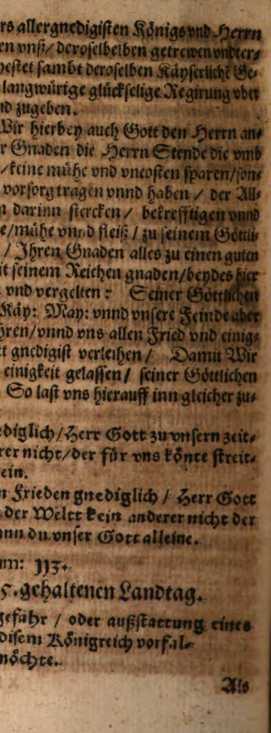 rs allergnedigisten Königs vnd Herrn
en vnß/ deroselbelben getrewen vndter-
bestet sambt deroselben Käyserlicht Ge-
langwürige glückselige Regirung vber
nd zugeben.
Wir hierbey auch Gott den Herrn an-
r Gnaden die Herrn Stende die vmb
/keine mühe vnd vncosten sparen/son-
vorsorg tragen vnnd haben / der All-
n darinn stercken / bekrefftigen vnnd
e/mühe vnnd fleiß / zu seinem Göttli-
/ Ihren Gnaden alles zu einen guten
it seinem Reichen gnaden/beydes hier
vnd vergelten: Seiner Göttlichen
Käy: May: vnnd vnsere Feinde aber
hren/vnnd vns allen Fried vnd einig-
t gnedigist verleihen/ Damit Wir
einigkeit gelassen/ seiner Göttlichen
So last vns hierauff inn gleicher zu-
ediglich/Herr Gott zu vnsern zeit-
rer nicht/der für vns könte streit-
ein.
n Frieden gnediglich / Herr Gott
der Weltt kein anderer nicht der
nn du vnser Gott alleine.
um: 113.
5. gehaltenen Landtag.
gefähr / oder außstattung eines
disem Königreich vorfal-
möchte.
Als